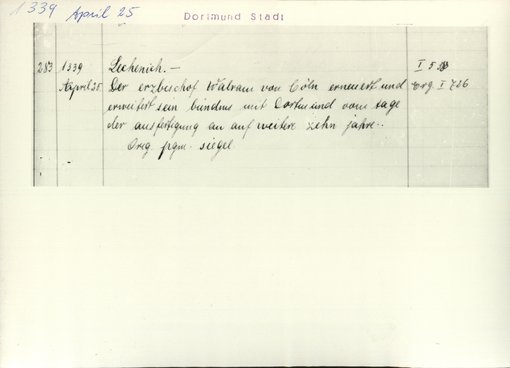 1339 April 25 Dortmund Stadt
283 1339 Lechenich.— I 5
April 25. Der erzbischof Walram von Cöln erneuert und erg. I 726
erweitert sein bündnis mit Dortmund vom tage
der ausfertigung an auf weitere zehn jahre.
Orig. pgm. siegel.